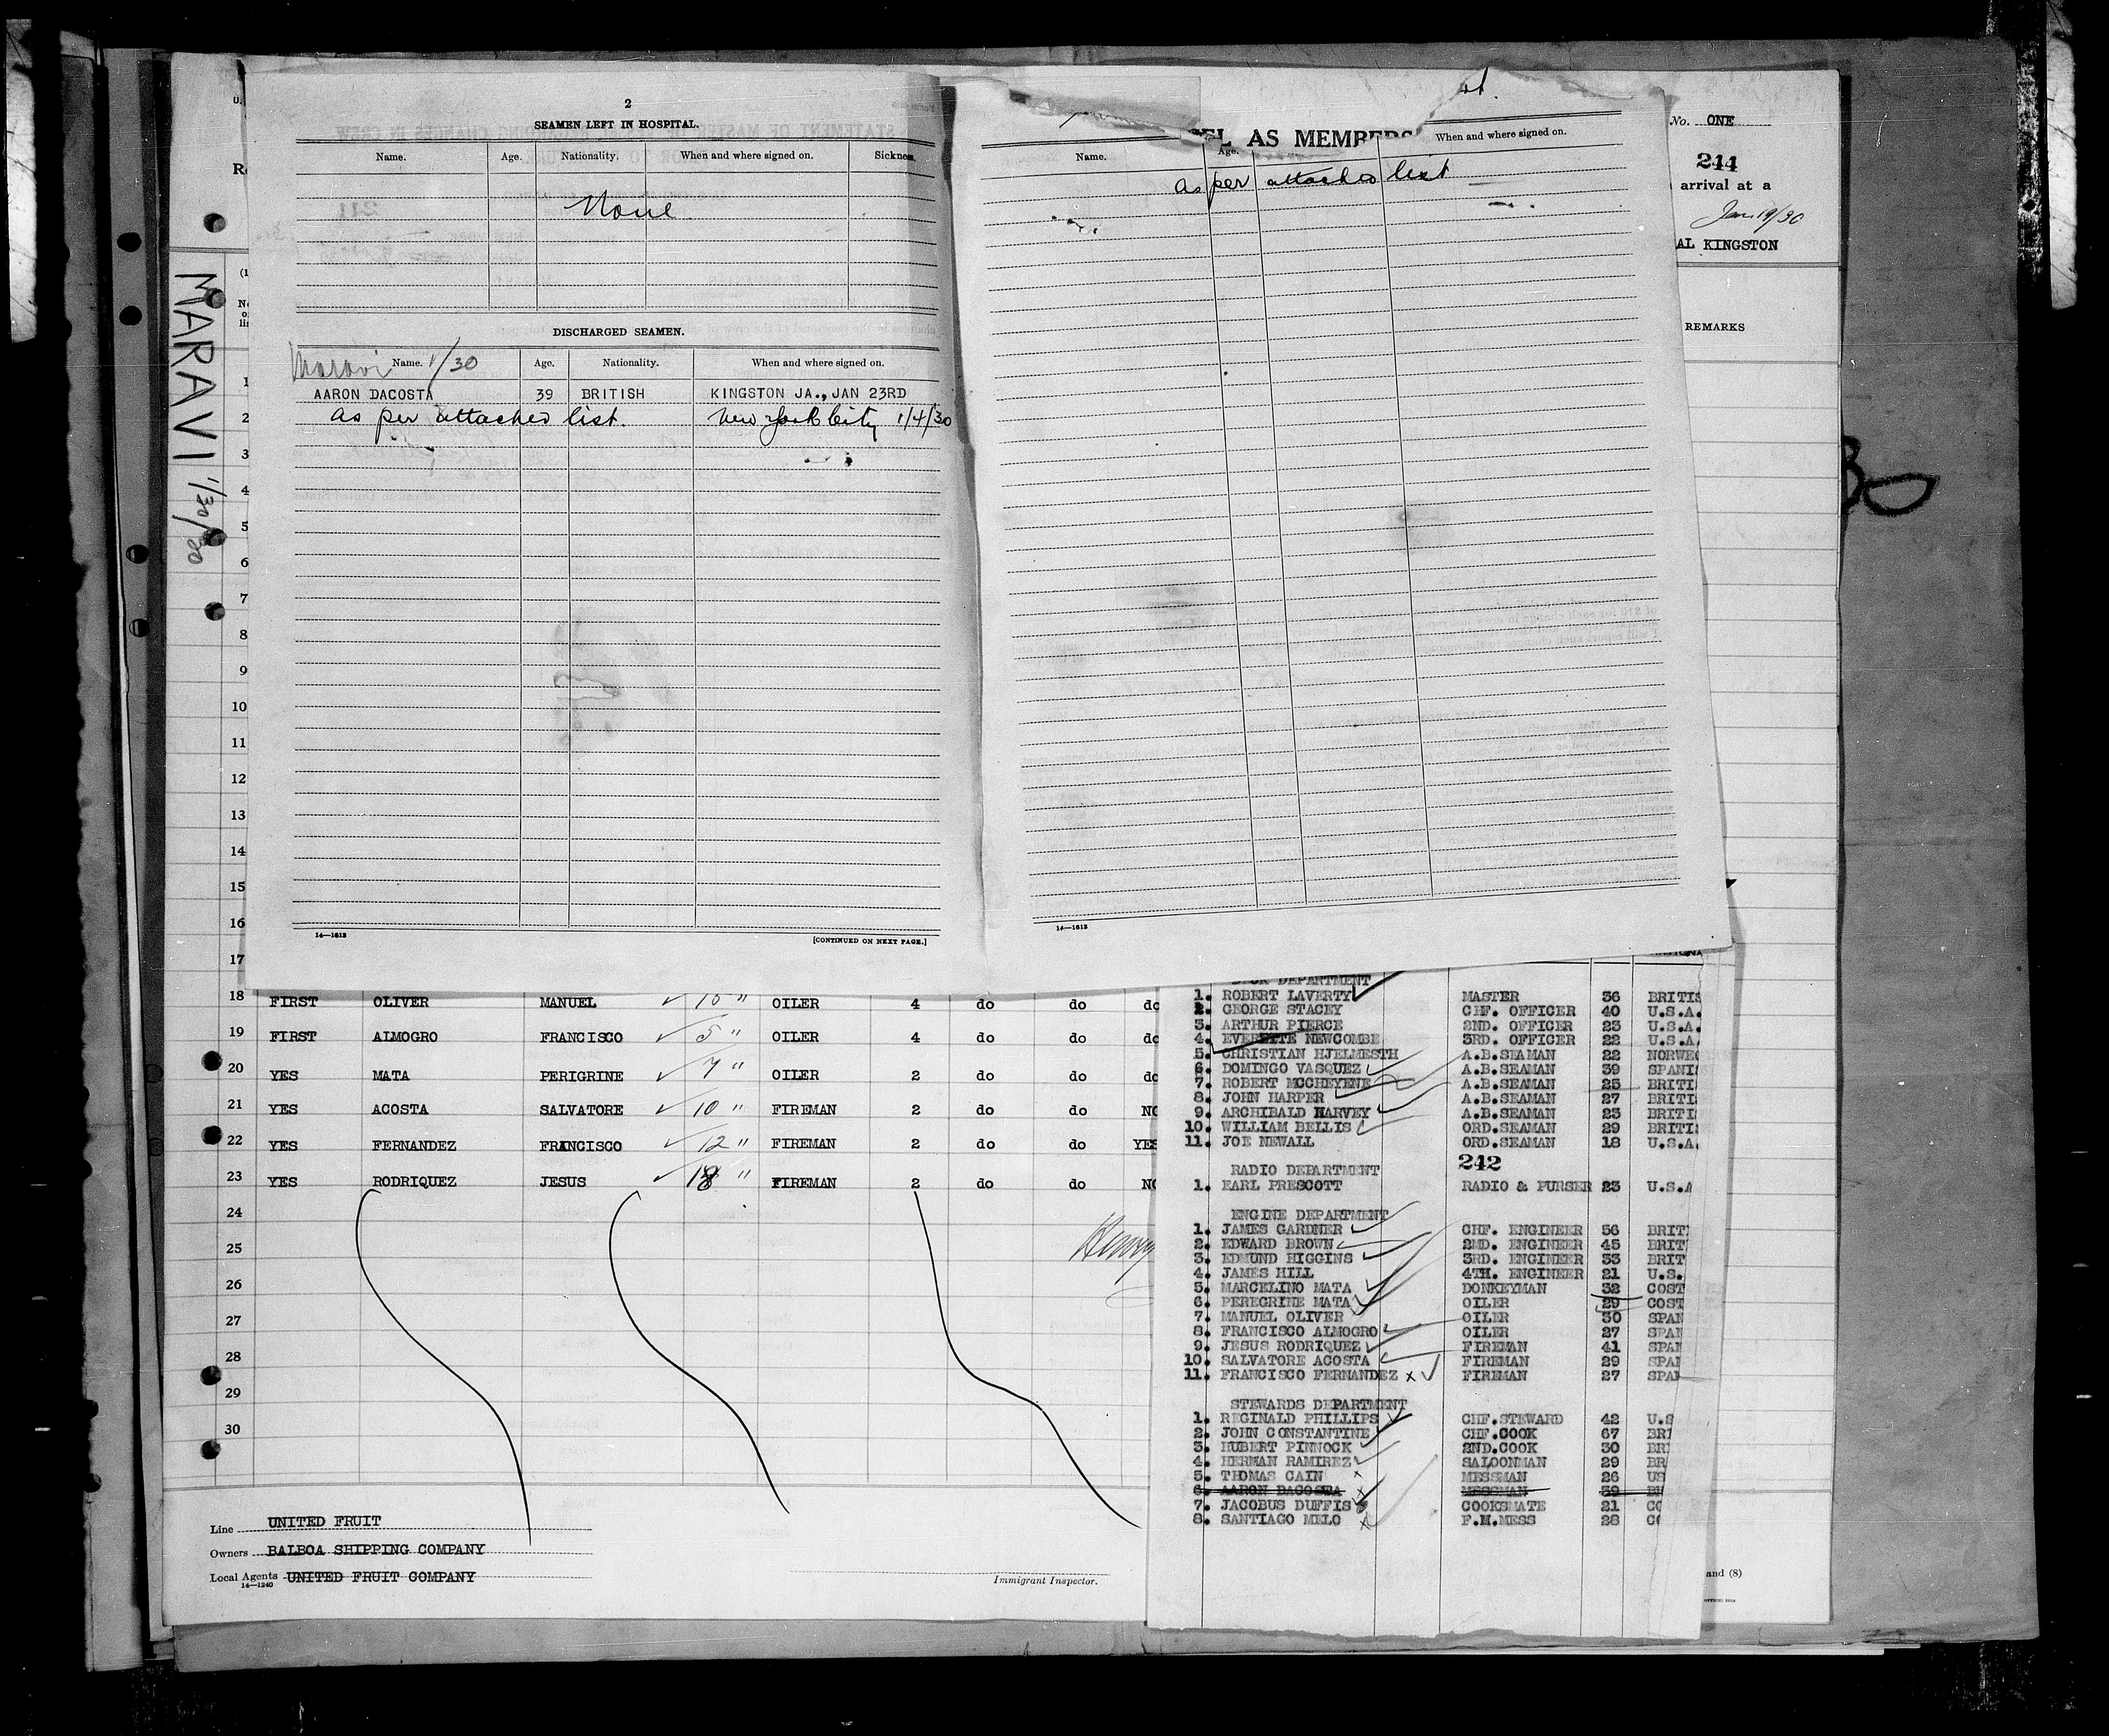 2
SEAMEN LEFT IN HOSPITAL.
Name. Age. Nationality. When and where signed on. Sickness.
None
DISCHARGED SEAMEN.
Maravi 1/30
Name. Age. Nationality. When and where signed on.
AARON DACOSTA 39 BRITISH KINGSTON JA., JAN 23RD
as per attached list. New York City 1/4/30
14—1613
[CONTINUED ON NEXT PAGE.]
EL AS MEMBERS
Name. Age. When and where signed on.
as per attached list
14—1613
No. ONE
244
arrival at a
Jan 19/30
AL KINGSTON
REMARKS
MARAVI 1/30/30
1
2
3
4
5
6
7
8
9
10
11
12
13
14
15
16
17
18 FIRST OLIVER MANUEL 15 " OILER 4 do do do
19 FIRST ALMOGRO FRANCISCO 5 " OILER 4 do do do
20 YES MATA PERIGRINE 7 " OILER 2 do do do
21 YES ACOSTA SALVATORE 10 " FIREMAN 2 do do NO
22 YES FERNANDEZ FRANCISCO 12 " FIREMAN 2 do do YES
23 YES RODRIQUEZ JESUS 18 " FIREMAN 2 do do NO
24
25
26
27
28
29
30
Henry
Line UNITED FRUIT
Owners BALBOA SHIPPING COMPANY
Local Agents UNITED FRUIT COMPANY
14—1240
Immigrant Inspector.
DECK DEPARTMENT
1. ROBERT LAVERTY MASTER 36 BRITIS
2. GEORGE STACEY CHF. OFFICER 40 U.S.A.
3. ARTHUR PIERCE 2ND. OFFICER 23 U.S.A.
4. EVERETTE NEWCOMBE 3RD. OFFICER 22 U.S.A.
5. CHRISTIAN HJELMESTH A.B.SEAMAN 22 NORWEG
6. DOMINGO VASQUEZ A.B.SEAMAN 39 SPANIS
7. ROBERT MCCHEYENE A.B.SEAMAN 25 BRITI
8. JOHN HARPER A.B.SEAMAN 27 BRITI
9. ARCHIBALD HARVEY A.B.SEAMAN 23 BRITI
10. WILLIAM BELLIS ORD.SEAMAN 29 BRITI
11. JOE NEWALL ORD.SEAMAN 18 U.S.A.
242
RADIO DEPARTMENT
1. EARL PRESCOTT RADIO & PURSER 23 U.S.A
ENGINE DEPARTMENT
1. JAMES GARDNER CHF. ENGINEER 56 BRIT
2. EDWARD BROWN 2ND. ENGINEER 45 BRIT
3. EDMUND HIGGINS 3RD. ENGINEER 33 BRIT
4. JAMES HILL 4TH. ENGINEER 21 U.S.
5. MARCELINO MATA DONKEYMAN 32 COST
6. PEREGRINE MATA OILER 29 COST
7. MANUEL OLIVER OILER 30 SPAN
8. FRANCISCO ALMOGRO OILER 27 SPAN
9. JESUS RODRIQUEZ FIREMAN 41 SPAN
10. SALVATORE ACOSTA FIREMAN 29 SPAN
11. FRANCISCO FERNANDEZ x FIREMAN 27 SPAN
STEWARDS DEPARTMENT
1. REGINALD PHILLIPS CHF.STEWARD 42 U.S
2. JOHN CONSTANTINE CHF.COOK 67 BRI
3. HUBERT PINNOCK 2ND.COOK 30 BR
4. HERMAN RAMIREZ SALOONMAN 29 BR
5. THOMAS CAIN x MESSMAN 26 US
6. AARON DACOSTA x MESSMAN 39 BR
7. JACOBUS DUFFIS COOKSMATE 21 CO
8. SANTIAGO MELO x F.M.MESS 28 CO
and (8)